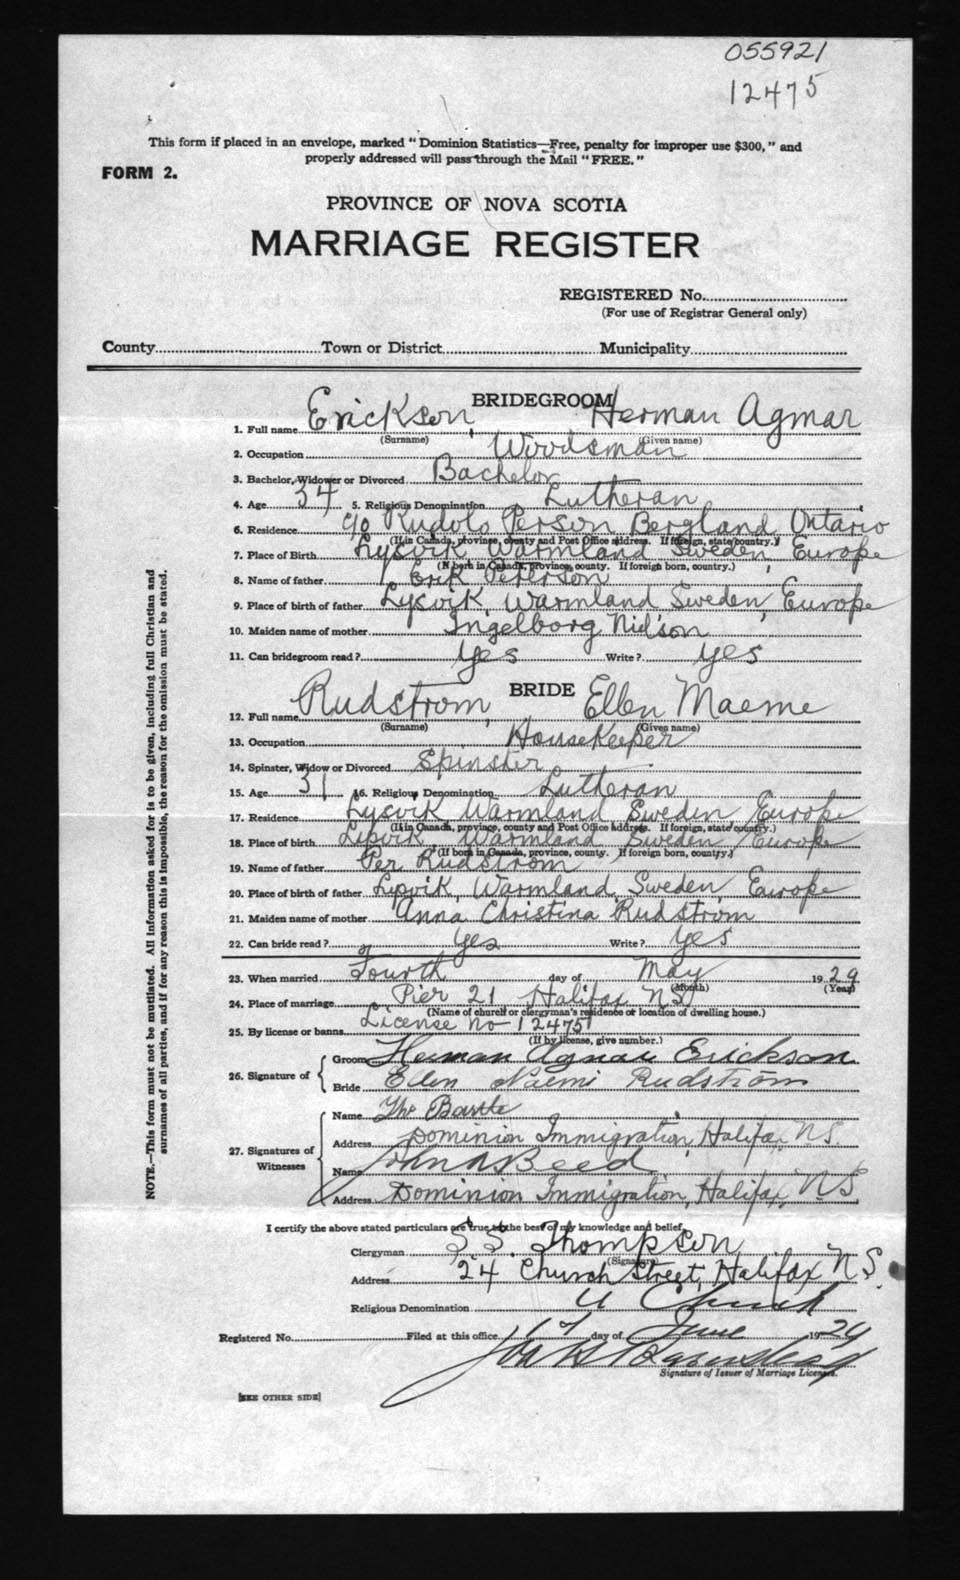 055921
12475
This form if placed in an envelope, marked "Dominion Statistics—Free, penalty for improper use $300," and
properly addressed will pass through the Mail "FREE."
FORM 2.
PROVINCE OF NOVA SCOTIA
MARRIAGE REGISTER
REGISTERED No.
(For use of Registrar General only)
County Town or District Municipality
BRIDEGROOM
1. Full name Erickson, Herman Agmar
(Surname) (Given name)
2. Occupation Woodsman
3. Bachelor, Widower or Divorced Bachelor
4. Age 34 5. Religious Denomination Lutheran
6. Residence c/o Rudolo Person Bergland Ontario
(If in Canada, province, county and Post Office address. If foreign, state country.)
7. Place of Birth Lysvik Warmland Sweden, Europe
(If born in Canada, province, county. If foreign born, country.)
8. Name of father Erik Peterson
9. Place of birth of father Lysvik, Warmland Sweden, Europe
10. Maiden name of mother Ingelborg Nielson
11. Can bridegroom read? Yes Write? Yes
BRIDE
12. Full name Rudstrom, Ellen Maeme
(Surname) (Given name)
13. Occupation Housekeeper
14. Spinster, Widow or Divorced Spinster
15. Age 31 16. Religious Denomination Lutheran
17. Residence Lysvik, Warmland Sweden, Europe
(If in Canada, province, county and Post Office address. If foreign, state country.)
18. Place of birth Lysvik, Warmland Sweden, Europe
(If born in Canada, province, county. If foreign born, country.)
19. Name of father Per Rudstrom
20. Place of birth of father Lysvik, Warmland, Sweden, Europe
21. Maiden name of mother Anna Christina Rudstrom
22. Can bride read? Yes Write? Yes
23. When married Fourth day of May 1929
(Month) (Year)
24. Place of marriage Pier 21, Halifax NS
(Name of church or clergyman's residence or location of dwelling house.)
25. By license or banns License no 12475
(If by license, give number.)
26. Signature of Groom Herman Agnar Erickson
Bride Ellen Naemi Rudström
27. Signatures of Witnesses
Name
Address Dominion Immigration, Halifax, N.S.
Name
Address Dominion Immigration, Halifax, NS
I certify the above stated particulars are true to the best of my knowledge and belief.
Clergyman S S. Thompson
(Signature)
Address 24 Church Street, Halifax N.S.
Religious Denomination U Church
Registered No. Filed at this office 17 day of June 1929
Signature of Issuer of Marriage Licenses.
[SEE OTHER SIDE]
NOTE.—This form must not be mutilated. All information asked for is to be given, including full Christian and
surnames of all parties, and if for any reason this is impossible, the reason for the omission must be stated.